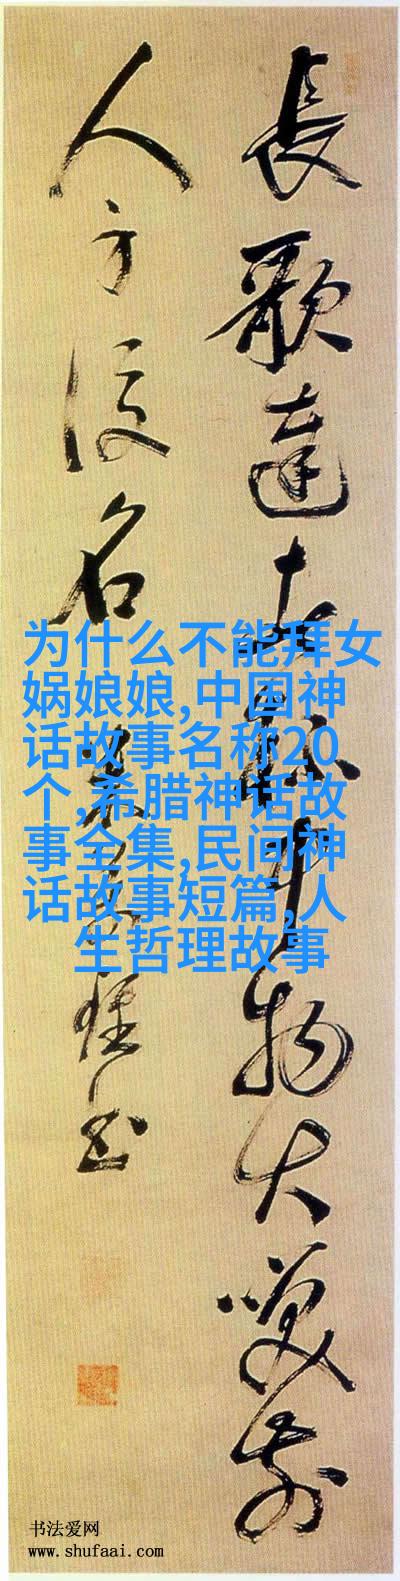 長歌達者杯中物大笑前
人身後名
为什么不能拜女
娲娘娘,中国神
话故事名称20
个,希腊神话故
事全集,民间神
话故事短篇,人
生哲理故事
书法爱网
www.shufaai.com